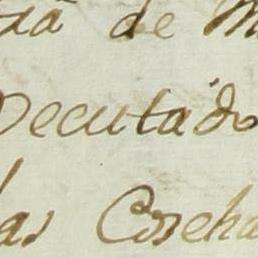 de
Decutado
las Coseha